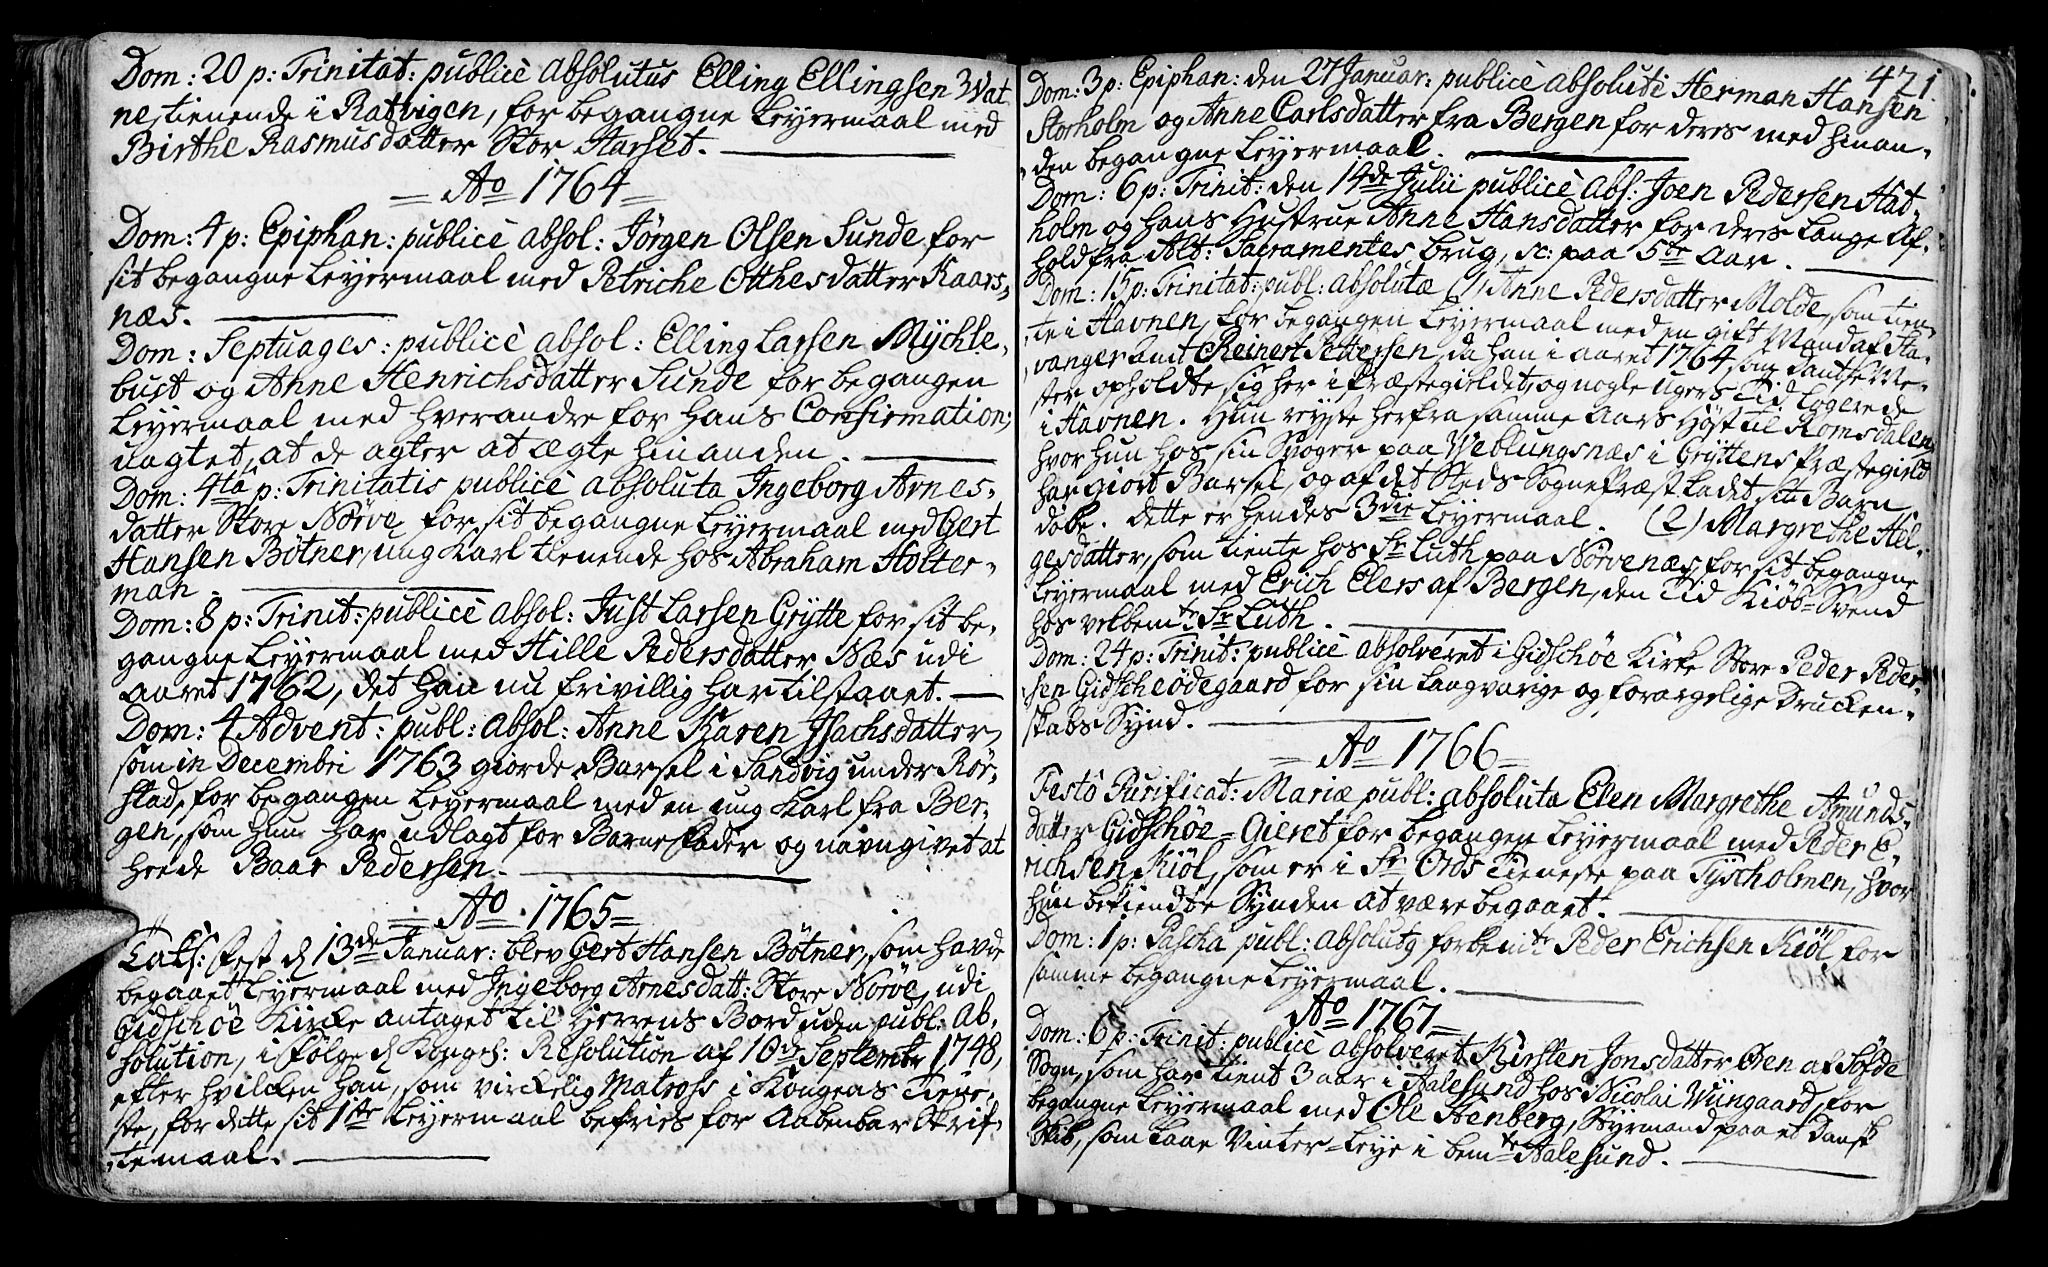 Dom: 20 p: Trinitat: publicè absolutus Elling Ellingsen Wat
ne, tienende i Ratvigen, for begangne Leyermaal med
Birthe Rasmusdatter Stor Harset.
= Ao 1764 =
Dom: 4 p: Epiphan: publicè absol: Jörgen Olsen Sunde for
sit begangne Leyermaal med Petriche Otthesdatter Kaars-
næs.
Dom: Septuages: publicè absol: Elling Larsen Mÿchle-
bust og Anne Henrichsdatter Sunde for begangen
Leyermaal med hverandre for hans Confirmation;
uagtet, at de agter at ægte hinanden.
Dom: 4ta p: Trinitatis publicè absoluta Ingeborg Arnes-
datter Store Nörve for sit begangne Leyermaal med Gert
Hansen Bötner, ung Karl tienende hos Abraham Holter-
man
Dom: 8 p: Trinit: publicè absol: Just Larsen Grÿtte for sit be-
gangne Leyermaal med Hille Pedersdatter Næs udi
aaret 1762, det han nu frivillig har tilstaaet.
Dom: 4 Advent: publ: absol: Anne Karen Isachsdatter,
som in Decembri 1763 giorde Barsel i Sandvig under Rör-
stad, for begangen Leyermaal med en ung Karl fra Ber-
gen, som hun har udlagt for Barnefader og navngivet at
heede Baar Pedersen.
= Ao 1765 =
Taks: fest d 13de Januar: blev Gert Hansen Bötner, som havde
begaaet Leyermaal med Ingeborg Arnesdatt: Store Nörve, udi
Gidschöe Kircke antaget til Herrens Bord uden publ: Ab-
solution, i fölge d Kongel: Resolution af 10de Septembr 1748,
efter hvilcken han, som virckelig Matross i Kongens Tiene-
ste, for dette sit 1ste Leyermaal befries for Aabenbar Skrif-
temaal.
471.
Dom: 3 p: Epiphan: den 27 Januar: publicè absoluti Herman Hansen
Storholm og Anne Carlsdatter fra Bergen for deres med hinan-
den begangne Leyermaal.
Dom: 6 p: Trinit: den 14de Julii publicè abs: Joen Pedersen Hat-
holm og hans Hustrue Anne Hansdatter for deres lange Af-
hold fra Alt: Sacramentes brug, sc: paa 5te Aar.
Dom: 15 p: Trinitat: publ: absolutæ (1) Anne Pedersdatter Molde, som tien-
te i Havnen, for begangen Leyermaal med en gift Mand af Sta-
vanger amt Reinert Pettersen, da han i aaret 1764 som
ster opholdte sig her i Præstegieldet, og nogle Ugers Tid logerede
i Havnen. Hun reyste herfra samme Aars Höst til Romsdalen,
hvor hun hos sin Svoger paa Weblungsnæs i Grÿttens Præstegield
har giort Barsel, og af det Steds Sogne Præst ladet sit Barn
döbe. Dette er hendes 3die Leyermaal. (2) Margrethe Hel-
gesdatter, som tiente hos Sr Luth paa Nörvenæs, for sit begangne
Leyermaal med Erich Elers af Bergen, den Tid Kiöb-Svend
hos velbemte Sr Luth.
Dom: 24 p: Trinit: publicè absolveret i Gidschöe Kirke Store Peder Peder-
sen Gidscheödegaard for sin langvarige og forargelige Drucken-
skabs Synd.
= Ao 1766 =
Festô Purificat: Mariæ publ: absoluta Elen Margrethe Amunds-
datter Gidschöe-Gieret for begangen Leyermaal med Peder E-
richsen Kiöl, som er i Sr Ords Tieneste paa Tÿscholmen, hvor
hun bekiendte Synden at være begaaet.
Dom: 1 p: Pascha publ: absolutg forbemte Peder Erichsen Kiöl for
samme begangne Leyermaal.
Ao 1767 =
Dom: 6 p: Trinit: publicè absolveret Kirsten Jonsdatter Öen af Söfde
Sogn, som har tient 3 aar i Aalesund hos Nicolai Wiingaard, for
begangne Leyermaal med Ole Stenberg, Styrmand paa et Dansk
Skib, som laae Vinter-Leye i bemte Aalesund.